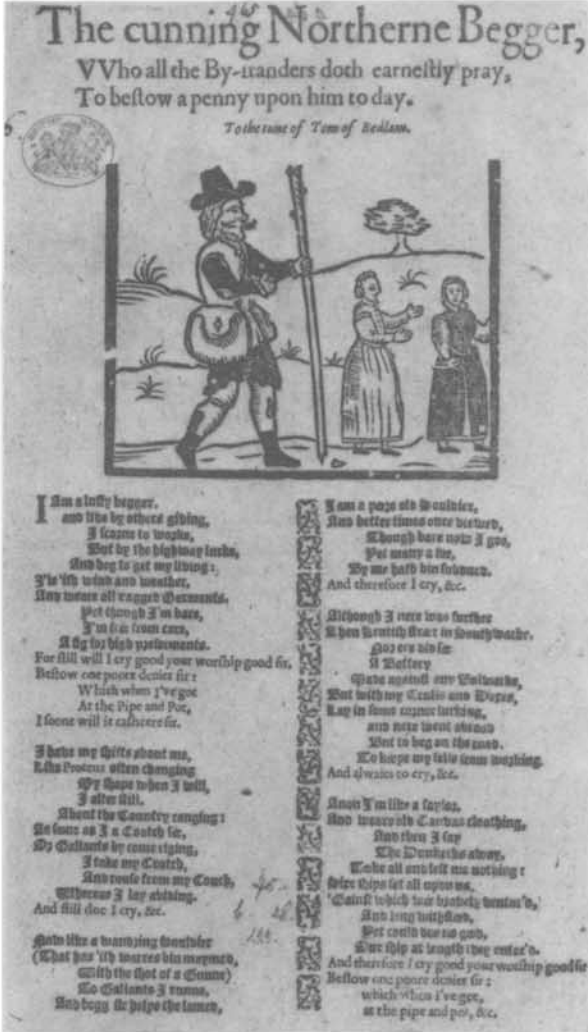 The cunning Northerne Begger,
VVho all the By-standers doth earnestly pray,
To bestow a penny upon him to day.
To the tune of Tom of Bedlam.
I Am a lusty begger,
and live by others giving,
I scorne to worke,
But by the highway lurke,
And beg to get my living:
I'le 'ith wind and weather,
And weare all ragged Garments,
Yet though I'm bare,
I'm free from care,
A fig for high preferments.
For still will I cry good your worship good sir,
Bestow one poore denier sir:
Which when I've got
At the Pipe and Pot,
I soone will it casheere sir.
I have my shifts about me,
Like Proteus often changing
My shape when I will,
I alter still,
About the Country ranging:
As soone as I a Coatch see,
Or Gallants by come riding,
I take my Crutch,
And rouse from my Couch,
Whereas I lay abiding.
And still doe I cry, &c.
Now like a wandring souldier
(That has 'ith warres bin maymed,
With the shot of a Gunne)
To Gallants I runne,
And begg sir helpe the lamed,
I am a poore old Souldier,
And better times once viewed,
Though bare now I goe,
Yet many a foe,
By me hath bin subdued.
And therefore I cry, &c.
Although I nere was further
Then Kentish street in Southwarke,
Nor ere did see
A Battery
Made against any Bulwarke,
But with my Trulls and Doxes,
Lay in some corner lurking,
and nere went abroad
But to beg on the road,
To keepe my selfe from working.
And alwaies to cry, &c.
Anon I'm like a saylor,
And weare old Canvas cloathing,
And then I say
The Dunkerks away,
Tooke all and left me nothing:
Sixe ships set all upon us,
'Gainst which wee bravely ventur'd,
And long withstood,
Yet could doe no good,
Our ship at length they enter'd.
And therefore I cry good your worship good sir
Bestow one poore denier sir:
which when I've got,
at the pipe and pot, &c.